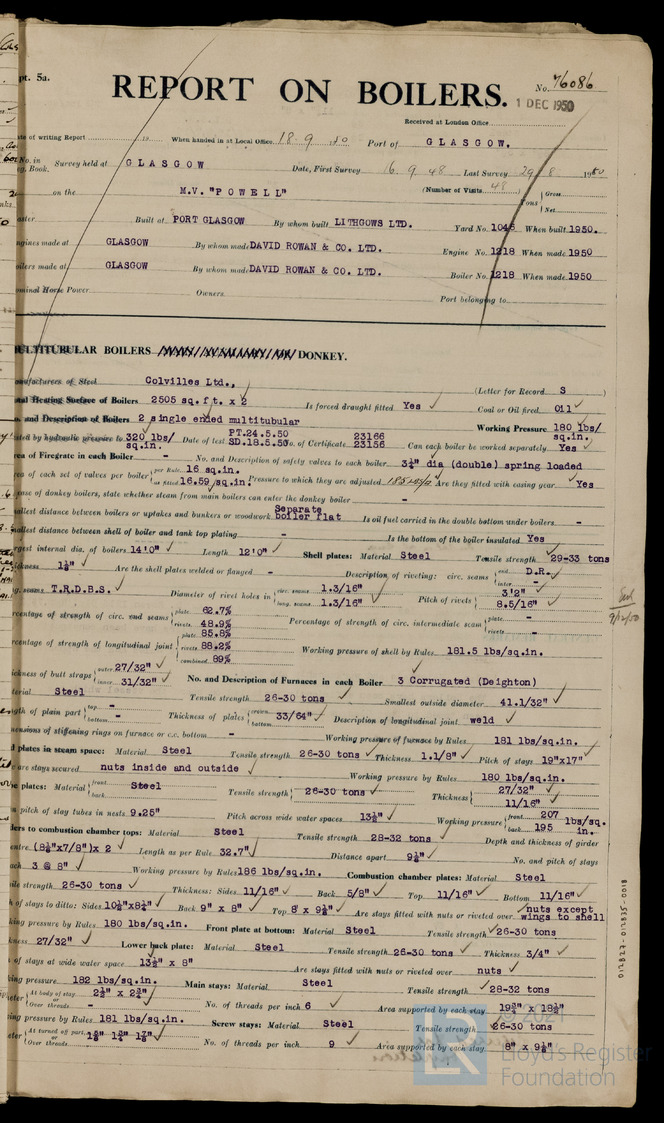 pt. 5a.
REPORT ON BOILERS.
No. 76086
1 DEC 1950
Received at London Office
te of writing Report 19 When handed in at Local Office 18 . 9 . 50 Port of GLASGOW.
No. in Survey held at GLASGOW Date, First Survey 16 . 9 . 48 Last Survey 29 . 8 . 1950
g. Book.
on the M.V. "POWELL" (Number of Visits 48) Tons Gross Net
aster Built at PORT GLASGOW By whom built LITHGOWS LTD. Yard No. 1046 When built 1950.
ngines made at GLASGOW By whom made DAVID ROWAN & CO. LTD. Engine No. 1218 When made 1950
oilers made at GLASGOW By whom made DAVID ROWAN & CO. LTD. Boiler No. 1218 When made 1950
ominal Horse Power Owners Port belonging to
ULTITUBULAR BOILERS DONKEY.
anufacturers of Steel Colvilles Ltd., (Letter for Record S )
tal Heating Surface of Boilers 2505 sq.ft. x 2 Is forced draught fitted Yes Coal or Oil fired Oil
o. and Description of Boilers 2 single ended multitubular Working Pressure 180 lbs/ sq.in.
sted by hydraulic pressure to 320 lbs/ sq.in. Date of test PT.24.5.50 SD.18.5.50 No. of Certificate 23166 23156 Can each boiler be worked separately Yes
rea of Firegrate in each Boiler - No. and Description of safety valves to each boiler 3¼" dia (double) spring loaded
rea of each set of valves per boiler per Rule 16 sq.in. as fitted 16.59 sq.in. Pressure to which they are adjusted 185 Are they fitted with easing gear Yes
case of donkey boilers, state whether steam from main boilers can enter the donkey boiler -
mallest distance between boilers or uptakes and bunkers or woodwork Separate boiler flat Is oil fuel carried in the double bottom under boilers -
mallest distance between shell of boiler and tank top plating - Is the bottom of the boiler insulated Yes
rgest internal dia. of boilers 14'0" Length 12'0" Shell plates: Material Steel Tensile strength 29-33 tons
ickness 1⅛" Are the shell plates welded or flanged - Description of riveting: circ. seams end D.R. inter. -
g. seams T.R.D.B.S. Diameter of rivet holes in circ. seams 1.3/16" long. seams 1.3/16" Pitch of rivets 3'2" 8.5/16"
rcentage of strength of circ. end seams plate 62.7% rivets 48.9% Percentage of strength of circ. intermediate seam plate - rivets -
rcentage of strength of longitudinal joint plate 85.8% rivets 88.2% combined 89% Working pressure of shell by Rules 181.5 lbs/sq.in.
ickness of butt straps outer 27/32" inner 31/32" No. and Description of Furnaces in each Boiler 3 Corrugated (Deighton)
terial Steel Tensile strength 26-30 tons Smallest outside diameter 41.1/32"
ngth of plain part top - bottom - Thickness of plates crown bottom 33/64" Description of longitudinal joint weld
mensions of stiffening rings on furnace or c.c. bottom - Working pressure of furnace by Rules 181 lbs/sq.in.
d plates in steam space: Material Steel Tensile strength 26-30 tons Thickness 1.1/8" Pitch of stays 19"x17"
are stays secured nuts inside and outside Working pressure by Rules 180 lbs/sq.in.
e plates: Material front back Steel Tensile strength 26-30 tons Thickness 27/32" 11/16"
n pitch of stay tubes in nests 9.25" Pitch across wide water spaces 13½" Working pressure front 207 lbs/sq. back 195 in.
ders to combustion chamber tops: Material Steel Tensile strength 28-32 tons Depth and thickness of girder
entre (8¼"x7/8")x 2 Length as per Rule 32.7" Distance apart 9½" No. and pitch of stays
ach 3 @ 8" Working pressure by Rules 186 lbs/sq.in. Combustion chamber plates: Material Steel
sile strength 26-30 tons Thickness: Sides 11/16" Back 5/8" Top 11/16" Bottom 11/16"
h of stays to ditto: Sides 10½"x8¼" Back 9" x 8" Top 8" x 9½" Are stays fitted with nuts or riveted over nuts except wings to shell
king pressure by Rules 180 lbs/sq.in. Front plate at bottom: Material Steel Tensile strength 26-30 tons
kness 27/32" Lower back plate: Material Steel Tensile strength 26-30 tons Thickness 3/4"
of stays at wide water space 13½" x 8" Are stays fitted with nuts or riveted over nuts
ing pressure 182 lbs/sq.in. Main stays: Material Steel Tensile strength 28-32 tons
meter At body of stay or Over threads 2½" x 2¾" - No. of threads per inch 6 Area supported by each stay 19¾" x 18½"
ing pressure by Rules 181 lbs/sq.in. Screw stays: Material Steel Tensile strength 26-30 tons
eter At turned off part or Over threads No. of threads per inch 9 Area supported by each stay 8" x 9½"
012827-012835-0018
© 2021
Lloyd's Register
Foundation